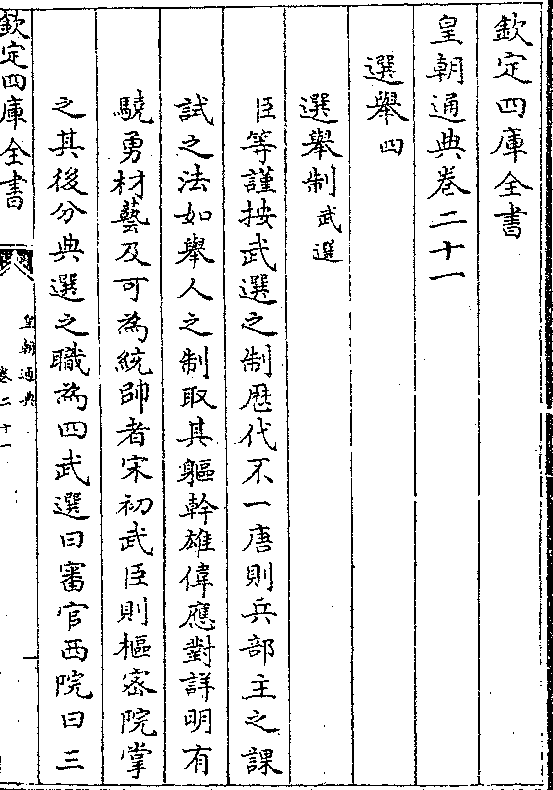 欽定四庫全書
皇朝通典卷二十一
選舉四
選舉制武選
臣等謹按武選之制歴代不一唐則兵部主之課
試之法如舉人之制取其軀幹雄偉應對詳明有
驍勇材藝及可為統帥者宋初武臣則樞宻院掌
之其後分典選之職為四武選曰審官西院曰三
欽定四庫全書
皇朝通典
卷二十一
一